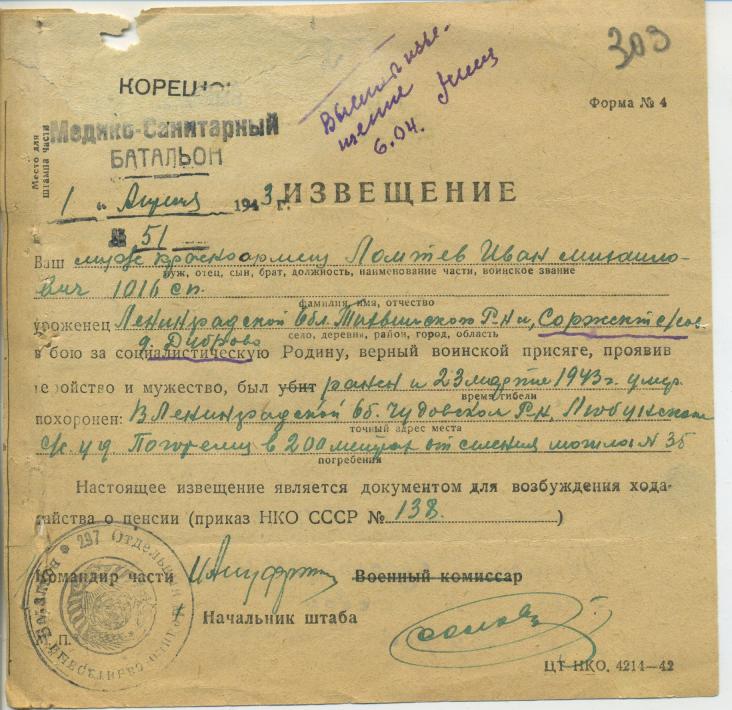 303
Выслано изве-
щение
6.04.
КОРЕШОК
Форма № 4
Место для
штампа части
Медико-Санитарный
БАТАЛЬОН
1 " Апреля 1943 г.
ИЗВЕЩЕНИЕ
№ 51
Ваш муж красноармеец Ломтев Иван Михайло-
муж, отец, сын, брат, должность, наименование части, воинское звание
вич 1016 сп.
фамилия, имя, отчество
уроженец Ленинградской обл. Тихвинского р-на,
село, деревня, район, город, область
д. Диброво
в бою за социалистическую Родину, верный воинской присяге, проявив
геройство и мужество, был убит ранен и 23 марта 1943 г. умер.
время гибели
похоронен: В Ленинградской об. Чудовском р-н,
точный адрес места
с/с у д Погорелец в 200 метрах от селения могила N 35
погребения
Настоящее извещение является документом для возбуждения хода-
тайства о пенсии (приказ НКО СССР № 138. )
Командир части Военный комиссар
Начальник штаба
М. П.
297 Отдельный Медико-санитарный Батальон
ЦТ НКО. 4214—42